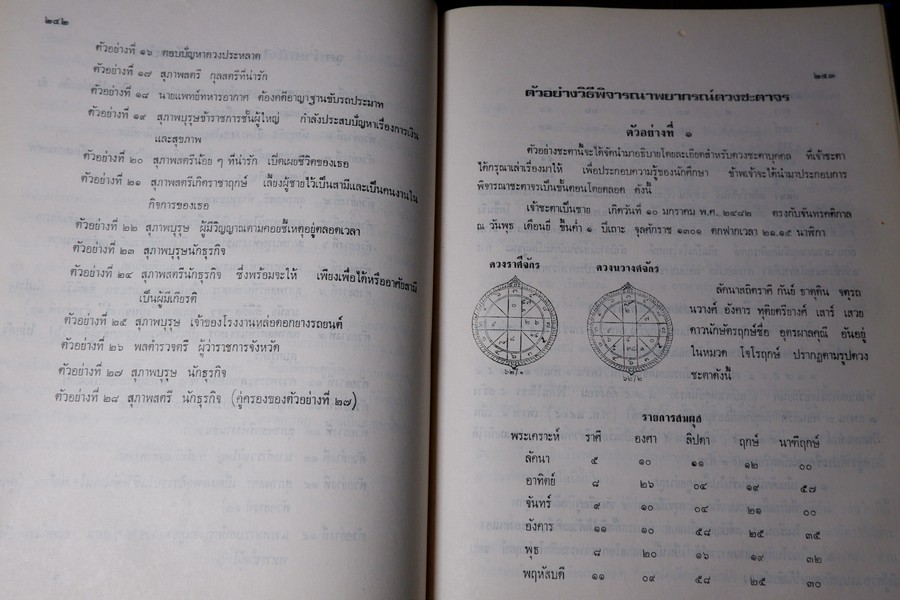 ๒๔๒
ตัวอย่างที่ ๑๖ ตอบปัญหาดวงประหลาด
ตัวอย่างที่ ๑๗ สุภาพสตรี กุลสตรีที่น่ารัก
ตัวอย่างที่ ๑๘ นายแพทย์ทหารอากาศ ต้องคดีอาญาฐานขับรถประมาท
ตัวอย่างที่ ๑๙ สุภาพบุรุษข้าราชการชั้นผู้ใหญ่ กำลังประสบปัญหาเรื่องการเงิน
และสุขภาพ
ตัวอย่างที่ ๒๐ สุภาพสตรีน้อย ๆ ที่น่ารัก เปิดเผยชีวิตของเธอ
ตัวอย่างที่ ๒๑ สุภาพสตรีเกิดราชาฤกษ์ เลี้ยงผู้ชายไว้เป็นสามีและเป็นคนงานใน
กิจการของเธอ
ตัวอย่างที่ ๒๒ สุภาพบุรุษ ผู้มีวิญญาณตามคอยชี้เหตุอยู่ตลอดเวลา
ตัวอย่างที่ ๒๓ สุภาพบุรุษนักธุรกิจ
ตัวอย่างที่ ๒๔ สุภาพสตรีนักธุรกิจ ซึ่งพร้อมจะให้ เพียงเพื่อได้หรืออาศัยสามี
เป็นผู้มีเกียรติ
ตัวอย่างที่ ๒๕ สุภาพบุรุษ เจ้าของโรงงานหล่อดอกยางรถยนต์
ตัวอย่างที่ ๒๖ พลตำรวจตรี ผู้ว่าราชการจังหวัด
ตัวอย่างที่ ๒๗ สุภาพบุรุษ นักธุรกิจ
ตัวอย่างที่ ๒๘ สุภาพสตรี นักธุรกิจ (คู่ครองของตัวอย่างที่ ๒๗)
๒๔๓
ตัวอย่างวิธีพิจารณาพยากรณ์ดวงชะตาจร
ตัวอย่างที่ ๑
ตัวอย่างชะตานี้จะได้จัดนำมาอธิบายโดยละเอียดสำหรับดวงชะตาบุคคล ที่เจ้าชะตา
ได้กรุณาเล่าเรื่องมาให้ เพื่อประกอบความรู้ของนักศึกษา ข้าพเจ้าจะได้นำมาประกอบการ
พิจารณาชะตาจรเป็นขั้นตอนโดยตลอด ดังนี้
เจ้าชะตาเป็นชาย เกิดวันที่ ๑๐ มกราคม พ.ศ. ๒๔๘๒ ตรงกับจันทรคติกาล
ณ วันพุธ เดือนยี่ ขึ้นค่ำ ๑ ปีเถาะ จุลศักราช ๑๓๐๑ ตกฟากเวลา ๒๑.๑๕ นาฬิกา
ดวงราศีจักร ดวงนวางศจักร
ลัคนาสถิตราศี กันย์ ธาตุดิน จตุรถ
นวางศ์ อังคาร ทุติยตรียางศ์ เสาร์ เสวย
ดาวนักษัตรฤกษ์ชื่อ อุตรผาลคุณี อันอยู่
ในหมวด โจโรฤกษ์ ปรากฏตามรูปดวง
ชะตาดังนี้
รายการสมผุส
พระเคราะห์ ราศี องศา ลิปดา ฤกษ์ นาฑีฤกษ์
ลัคนา ๕ ๑๐ ๑๑ ๑๒ ๐๐
อาทิตย์ ๘ ๒๖ ๐๔ ๑๙ ๕๗
จันทร์ ๙ ๑๐ ๐๔ ๒๑ ๐๐
อังคาร ๑๑ ๑๐ ๕๘ ๒๕ ๓๕
พุธ ๘ ๒๐ ๑๖ ๑๙ ๓๒
พฤหัสบดี ๑๑ ๐๙ ๕๘ ๒๕ ๓๐